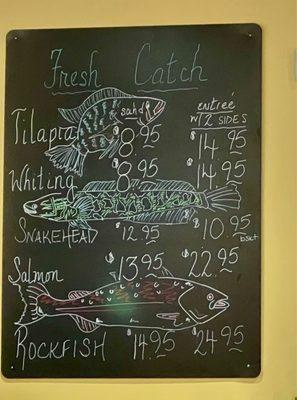 Fresh Catch
sand entrée
w/ 2 SIDES
Tilapia $8.95 $14.95
Whiting $8.95 $14.95
SNAKEHEAD $12.95 $10.95 bskt
Salmon $13.95 $22.95
ROCKFISH $14.95 $24.95